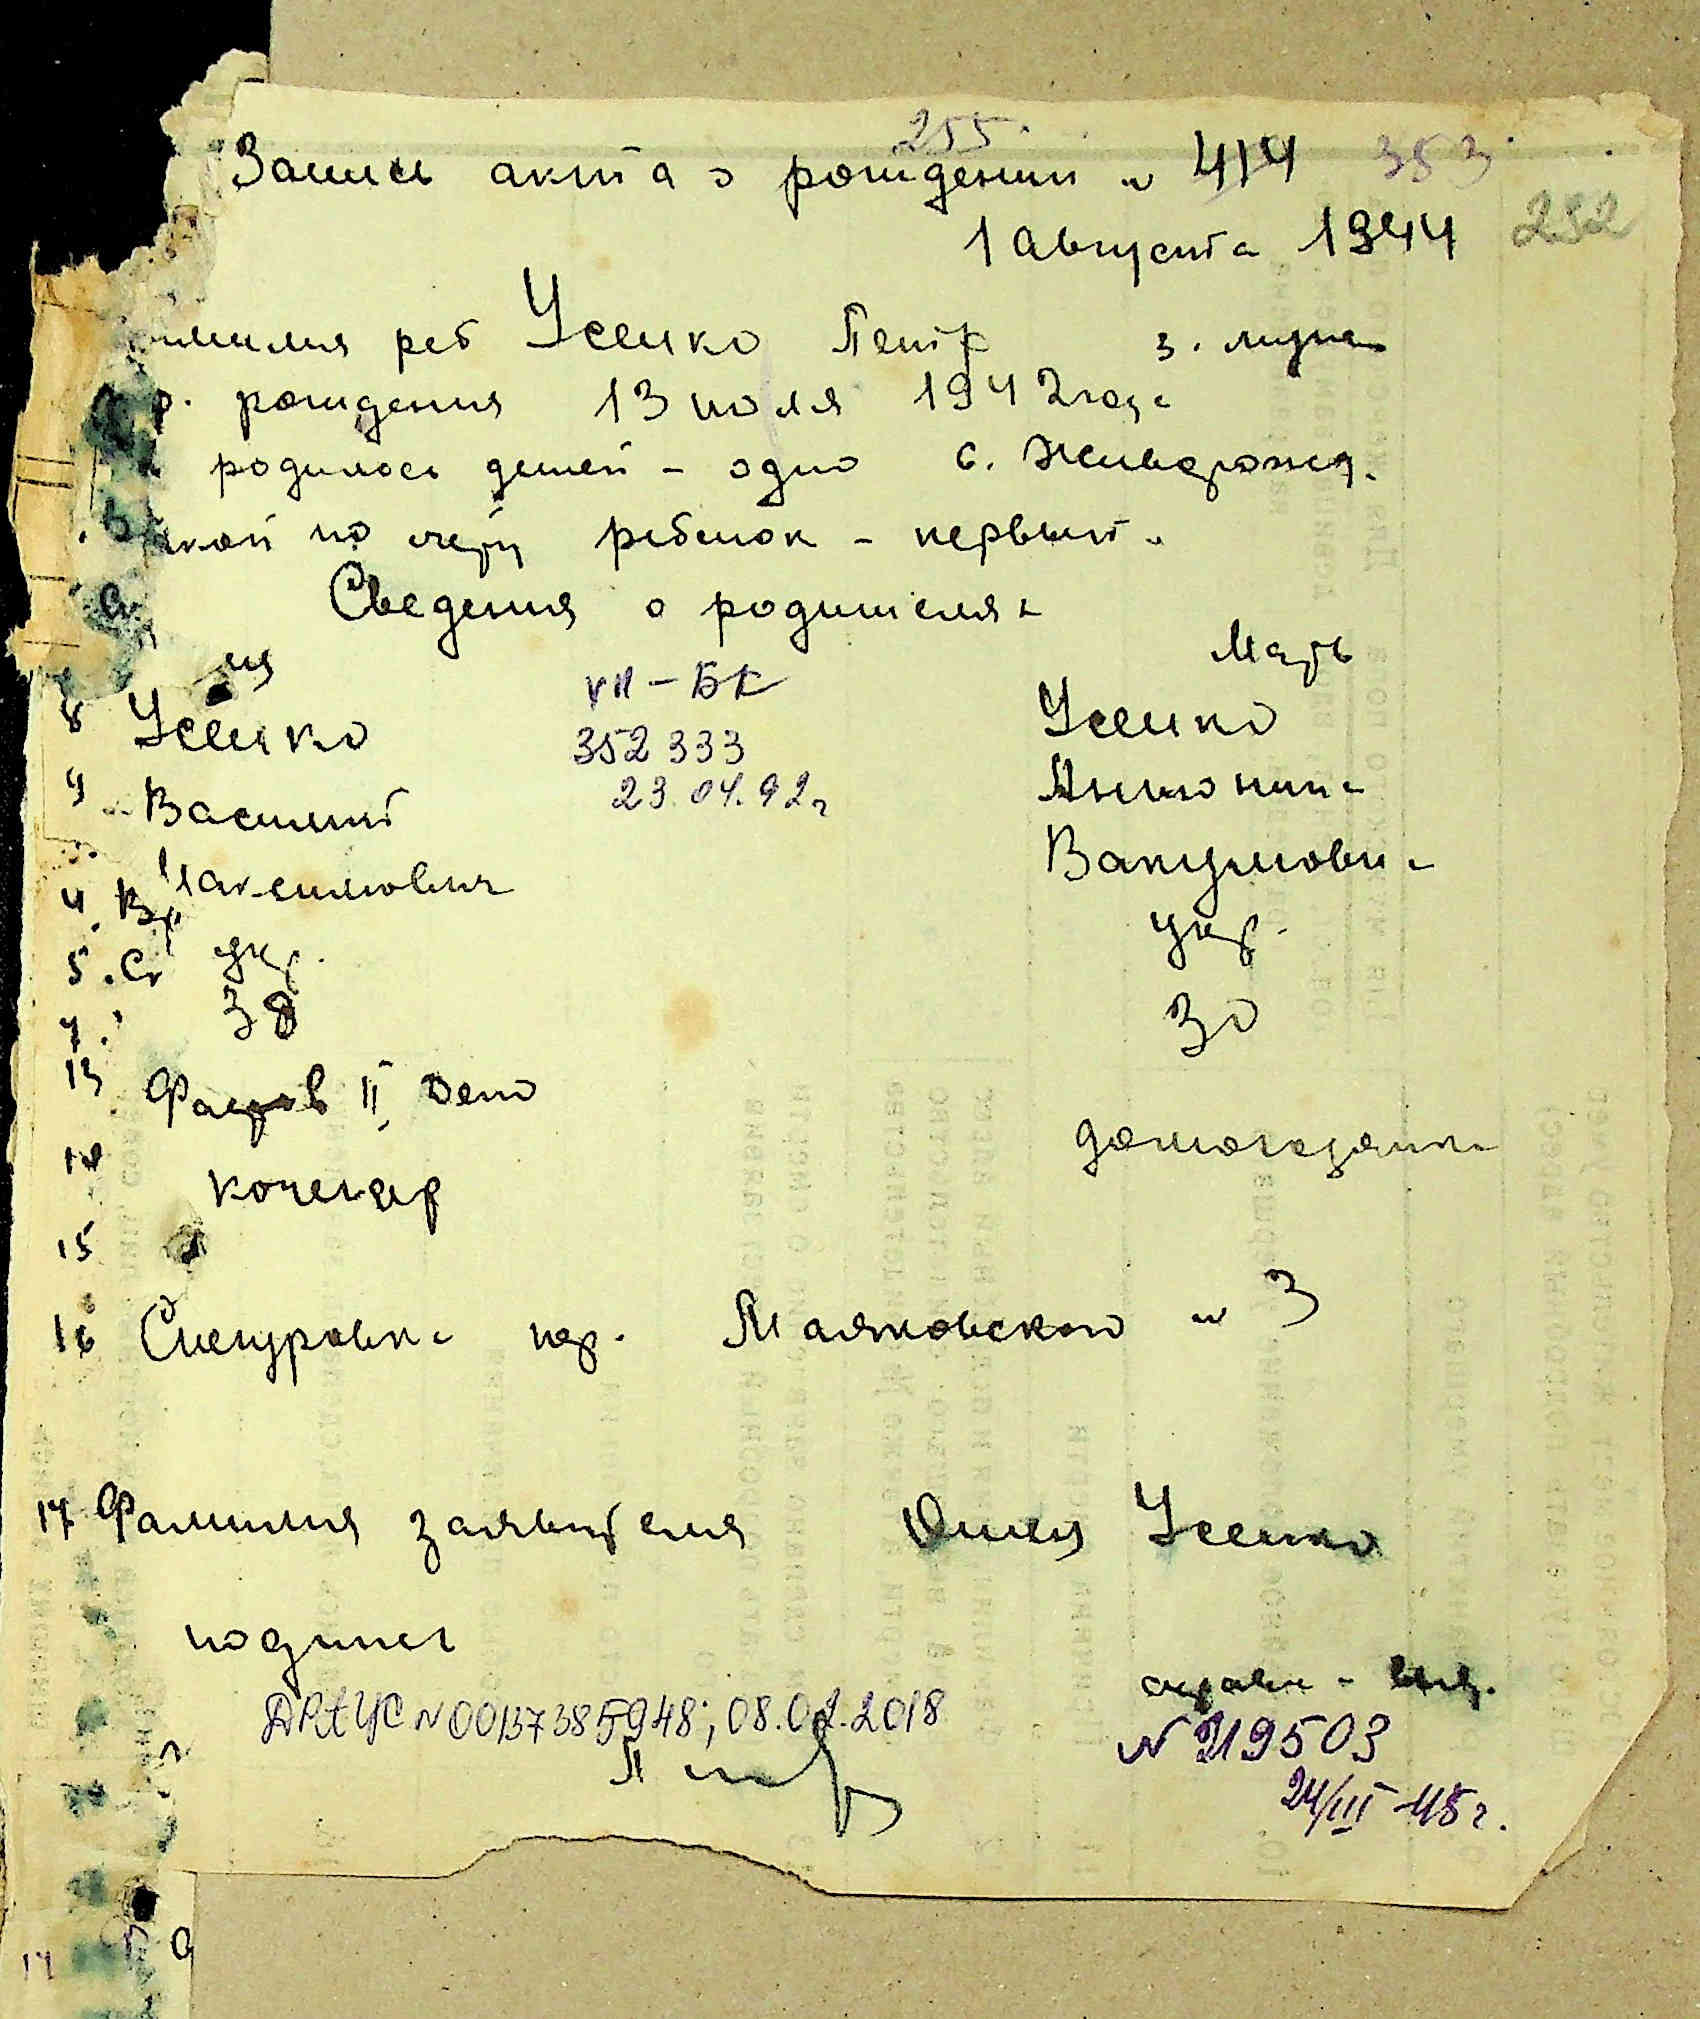 255
Запись акта о рождении № 414 353
1 августа 1944 292
милия реб Усенко Петр 3. муж
р. рождения 13 июля 1942 года
родилось детей - одно 6. Живорожд.
какой по счету ребенок - первый.
Сведения о родителях
Мать
УК - БК
8 Усенко 352 333 Усенко
9 Василий 23.04.92 г Антонина
Максимович Вакумовна
4. укр. укр.
5. Ст
7. 38 30
13 II Депо
домохозяйка
14 кочегар
15
16 Снегуровка пер. Маяковского № 3
17 Фамилия заявителя Отец Усенко
подпись
ДРАЦС № 00137385948; 08.02.2018
справк - выд.
№ 219503
24/III 45 г.